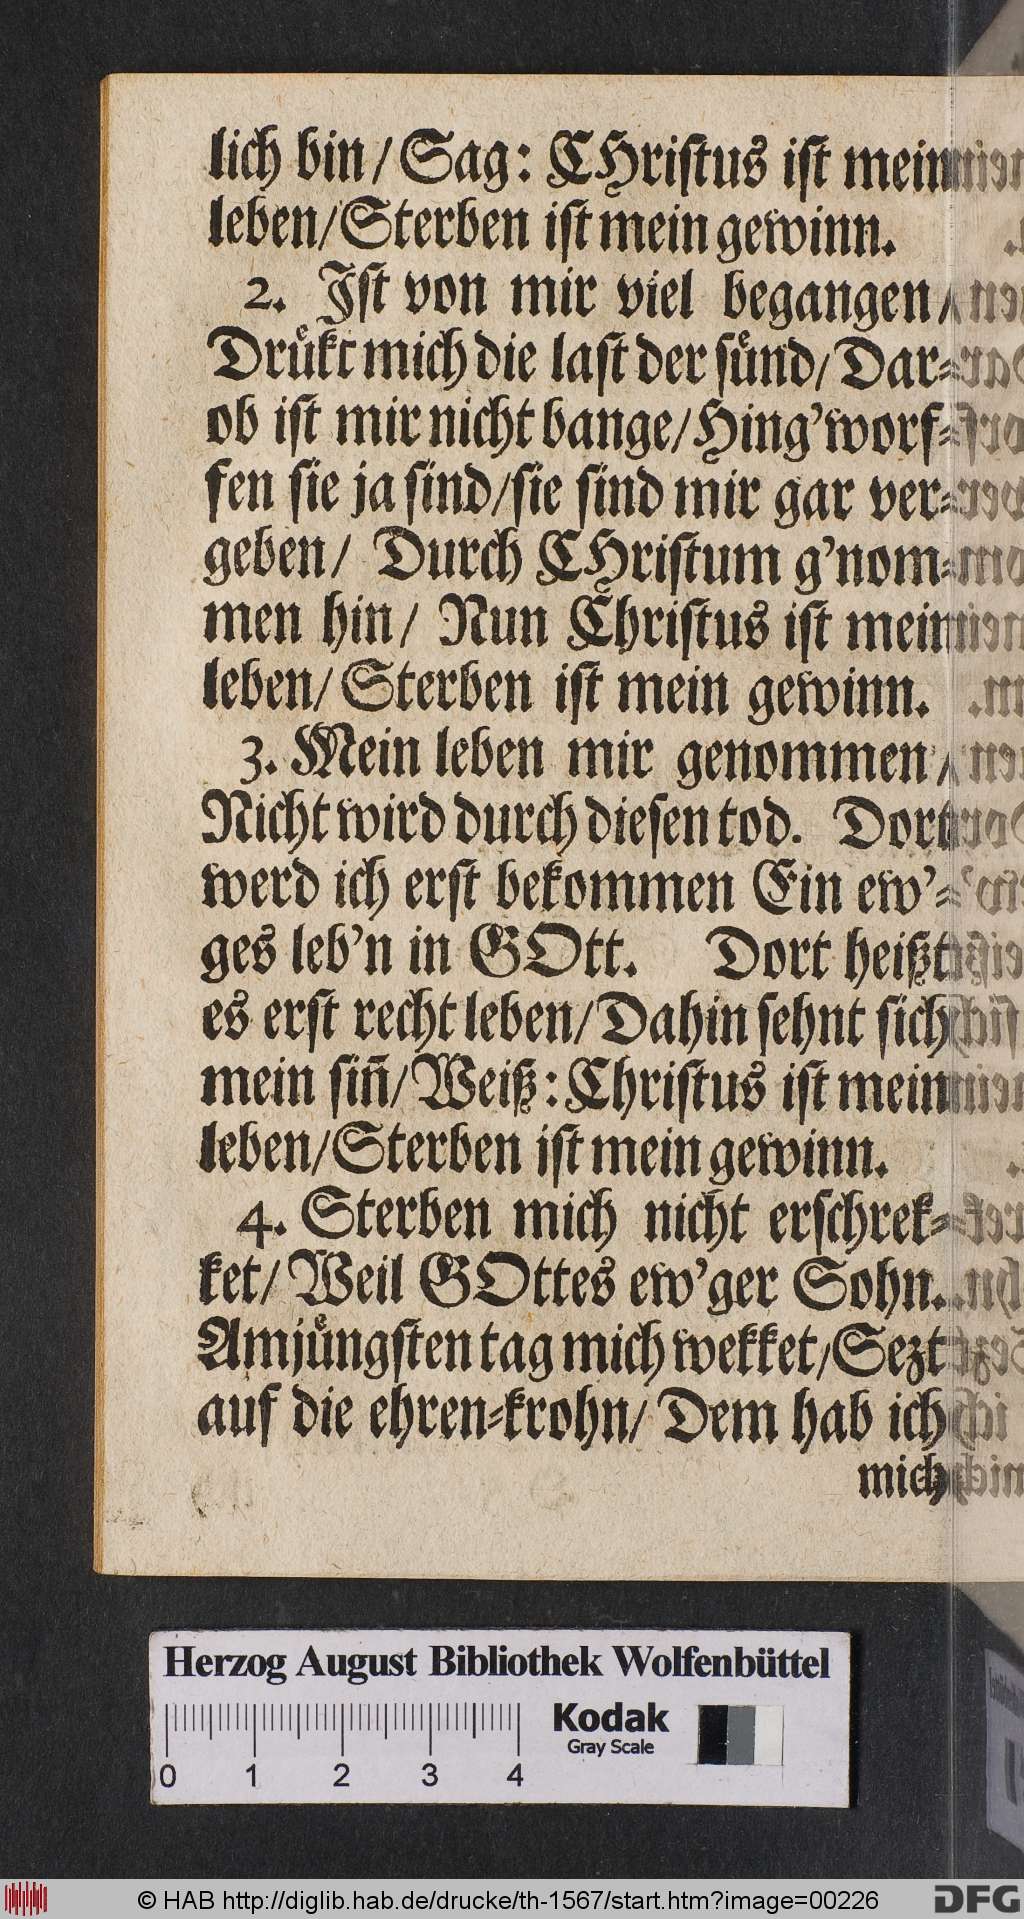 lich bin/ Sag: CHristus ist mein
leben/Sterben ist mein gewinn.
2. Jst von mir viel begangen/
Druͤkt mich die last der suͤnd/ Dar-
ob ist mir nicht bange/ Hing'worf-
fen sie ja sind/sie sind mir gar ver-
geben/ Durch CHristum g'nom-
men hin/ Nun Christus ist mein
leben/ Sterben ist mein gewinn.
3. Mein leben mir genommen/
Nicht wird durch diesen tod. Dort
werd ich erst bekommen Ein ew'-
ges leb'n in GOtt. Dort heißt
es erst recht leben/ Dahin sehnt sich
mein sin̄/ Weiß: Christus ist mein
leben/Sterben ist mein gewinn.
4. Sterben mich nicht erschrek-
ket/ Weil GOttes ew'ger Sohn.
Am juͤngsten tag mich wekket/Sezt
auf die ehren-krohn/ Dem hab ich
mich
Herzog August Bibliothek Wolfenbüttel
Kodak
Gray Scale
0 1 2 3 4
© HAB http://diglib.hab.de/drucke/th-1567/start.htm?image=00226
DFG